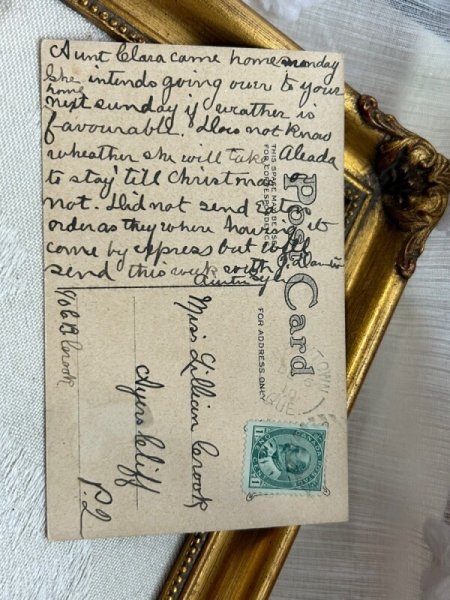 Aunt Clara came home monday
She intends going over to your
home
next sunday if weather is
favourable. Does not know
wheather she will take Aleada
to stay 'till Christmas or
not. Did not send
order as they where having it
come by express but will
send this week with
Auntie
Post Card
THIS SPACE MAY BE USED
FOR CORRESPONDENCE
FOR ADDRESS ONLY
Miss Lillian Crook
Ayers Cliff
P.2
Crook
TOWN
QUE
CANADA POSTAGE
1 1